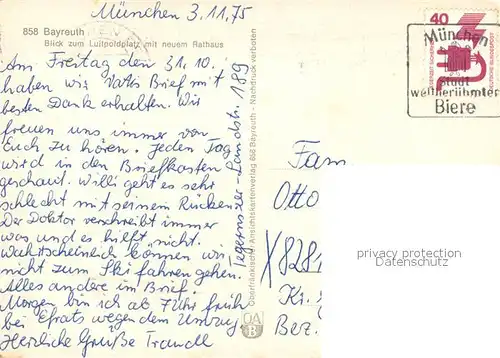 München 3.11.75
858 Bayreuth
Blick zum Luitpoldplatz mit neuem Rathaus
Am Freitag den 31.10.
haben wir Vatis Brief mit
besten Dank erhalten. Wir
freuen uns immer von
Euch zu hören. Jeden Tag
wird in den Briefkasten
geschaut. Willi geht es sehr
schlecht mit seinem Rücken
Der Doktor verschreibt immer
was und es hilft nicht.
Wahrscheinlich können wir
nicht zum Ski fahren gehen.
Alles andere im Brief.
Morgen bin ich ab 7 Uhr früh
bei Efrats wegen dem Umzug
Herzliche Grüße Traudl
Tegernseer-Landstr. 189
Oberfränkischer Ansichtskartenverlag 858 Bayreuth - Nachdruck verboten
OA
B
40
DEUTSCHE BUNDESPOST
München
Stadt
weltberühmter
Biere
Fam
Otto
X8281
Kr.
Bez.
privacy protection
Datenschutz